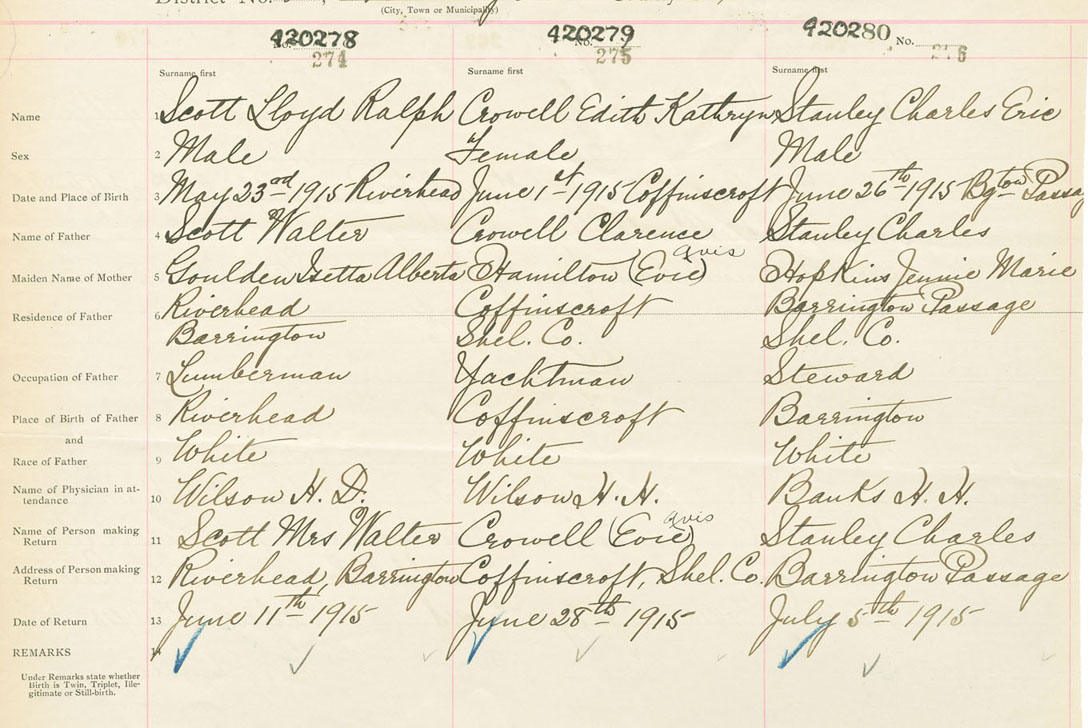 District No.
(City, Town or Municipality)
420278 420279 420280
No. 274 No. 275 No. 276
Surname first Surname first Surname first
Name 1 Scott Lloyd Ralph Crowell Edith Kathryn Stanley Charles Eric
Sex 2 Male Female Male
Date and Place of Birth 3 May 23rd 1915 Riverhead June 1st 1915 Coffinscroft June 26th 1915 Bgton Passa
Name of Father 4 Scott Walter Crowell Clarence Stanley Charles
Avis
Maiden Name of Mother 5 Goulden Isetta Alberta Hamilton (Evie) Hopkins Jennie Marie
Residence of Father 6 Riverhead Coffinscroft Barrington Passage
Barrington Shel. Co. Shel. Co.
Occupation of Father 7 Lumberman Yachtman Steward
Place of Birth of Father 8 Riverhead Coffinscroft Barrington
and
Race of Father 9 White White White
Name of Physician in at-
tendance 10 Wilson H. D. Wilson H. H. Banks H. H.
Avis
Name of Person making
Return 11 Scott Mrs Walter Crowell (Evie) Stanley Charles
Address of Person making
Return 12 Riverhead, Barrington Coffinscroft, Shel. Co. Barrington Passage
Date of Return 13 June 11th 1915 June 28th 1915 July 5th 1915
REMARKS 14
Under Remarks state whether
Birth is Twin, Triplet, Ille-
gitimate or Still-birth.